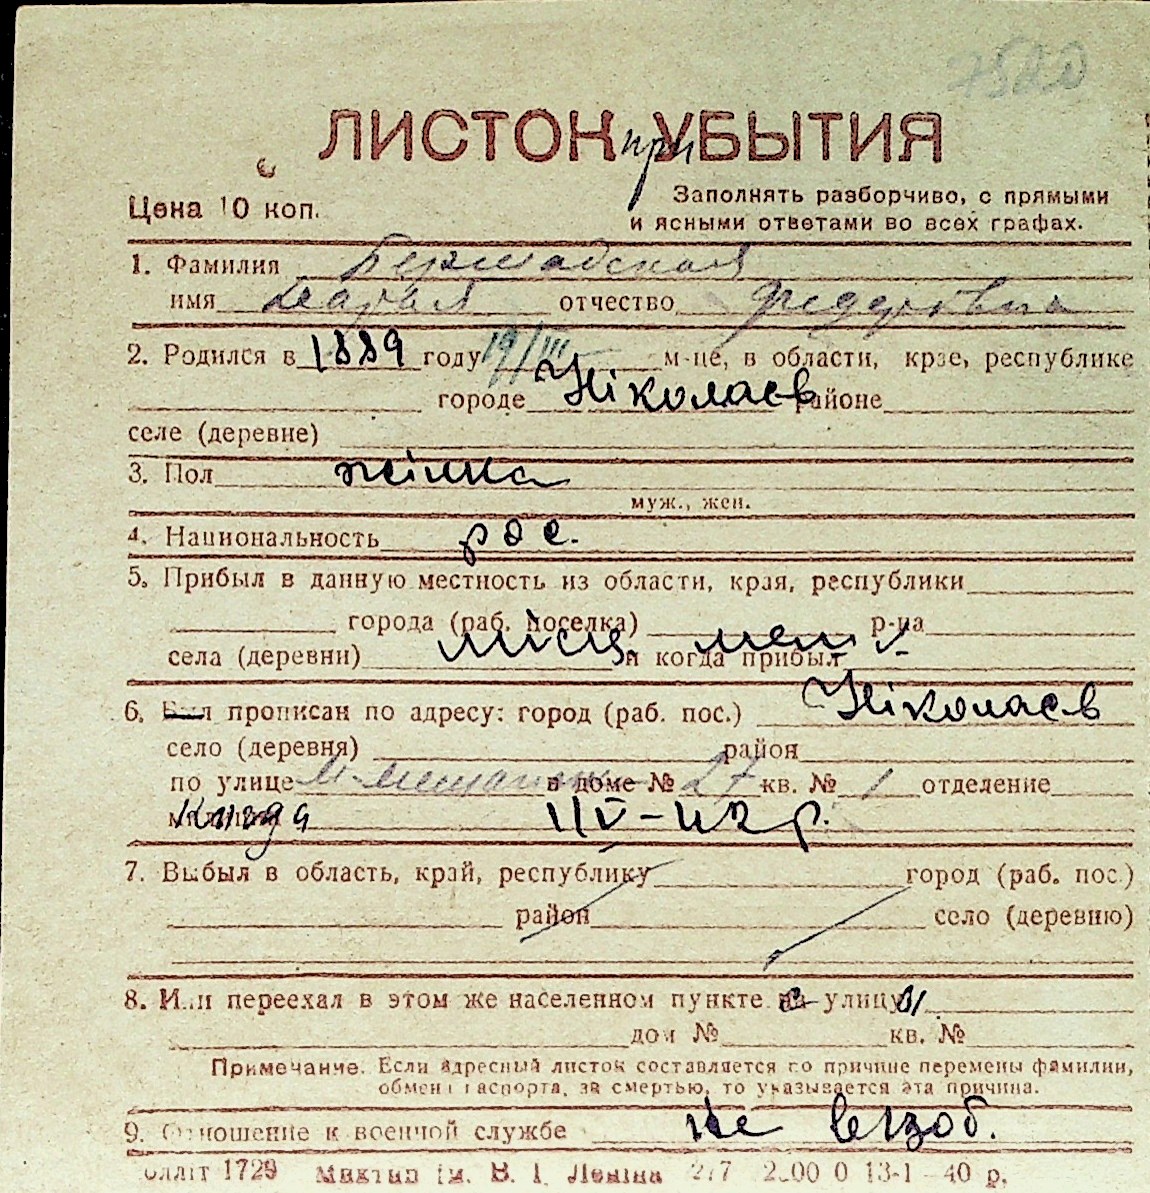 7520
ЛИСТОК при УБЫТИЯ
Цена 10 коп.
Заполнять разборчиво, с прямыми
и ясными ответами во всех графах.
1. Фамилия Бершадская
имя Мария отчество Федоровна
2. Родился в 1889 году 19/VIII м-це, в области, крае, республике
городе Ніколаєв районе
селе (деревне)
3. Пол жінка
муж., жен.
4. Национальность рос.
5. Прибыл в данную местность из области, края, республики
города (раб. поселка) р-на
села (деревни) місц. меш. и когда прибыл
6. Был прописан по адресу: город (раб. пос.) Ніколаєв
село (деревня) район
по улице в доме № 27 кв. № 1 отделение
милиции 1/IV-42 р.
7. Выбыл в область, край, республику город (раб. пос.)
район село (деревню)
8. Или переехал в этом же населенном пункте на с улицу ы
дом № кв. №
Примечание. Если адресный листок составляется по причине перемены фамилии,
обмена паспорта, за смертью, то указывается эта причина.
9. Отношение к военной службе не візоб.
Оллiт 1729 ім. В. І. Леніна 217 2000 0 13-1-40 р.